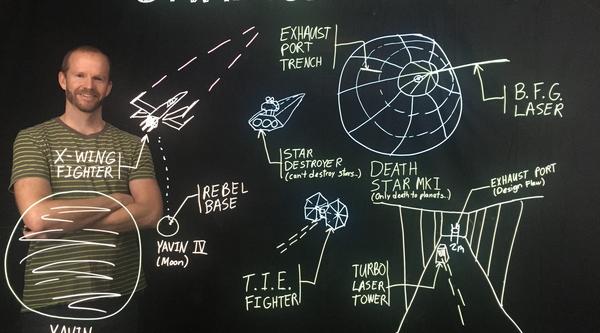 EXHAUST
PORT
TRENCH
B.F.G.
LASER
X-WING
FIGHTER
STAR
DESTROYER
(can't destroy stars..)
DEATH
STAR MKI
(Only death to planets..)
EXHAUST PORT
(Design Flaw)
REBEL
BASE
YAVIN IV
(Moon)
2m
T.I.E.
FIGHTER
TURBO
LASER
TOWER
YAVIN